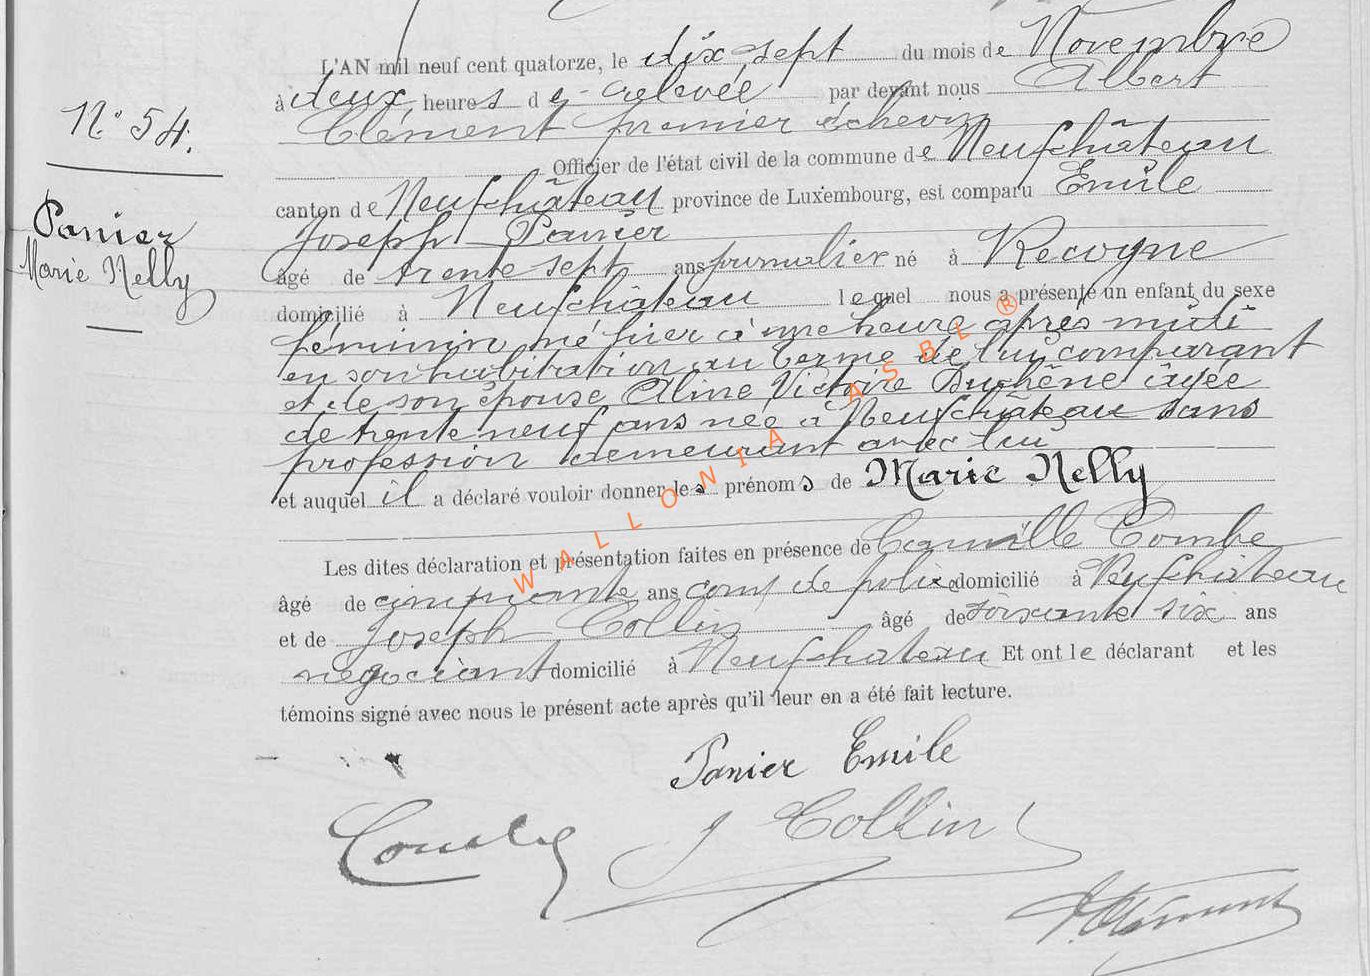 L'AN mil neuf cent quatorze, le dix sept du mois de Novembre
à deux heures de relevée par devant nous Albert
Clément premier échevin
Officier de l'état civil de la commune de Neufchâteau
canton de Neufchâteau province de Luxembourg, est comparu Emile
Joseph Panier
âgé de trente sept ans journalier né à Recogne
domicilié à Neufchâteau lequel nous a présenté un enfant du sexe
féminin, né hier à une heure après midi
en son habitation au Terme de lui comparant
et de son épouse Aline Victoire Duchêne âgée
de trente neuf ans née à Neufchâteau sans
profession demeurant avec lui
et auquel il a déclaré vouloir donner les prénoms de Marie Nelly
Les dites déclaration et présentation faites en présence de Camille Combe
âgé de cinquante ans com de police domicilié à Neufchateau
et de Joseph Collin âgé de soixante six ans
négociant domicilié à Neufchateau Et ont le déclarant et les
témoins signé avec nous le présent acte après qu'il leur en a été fait lecture.
N° 54.
Panier
Marie Nelly
Panier Emile
Combe J Collin
A. Clément
WALLONIA ASBL ®